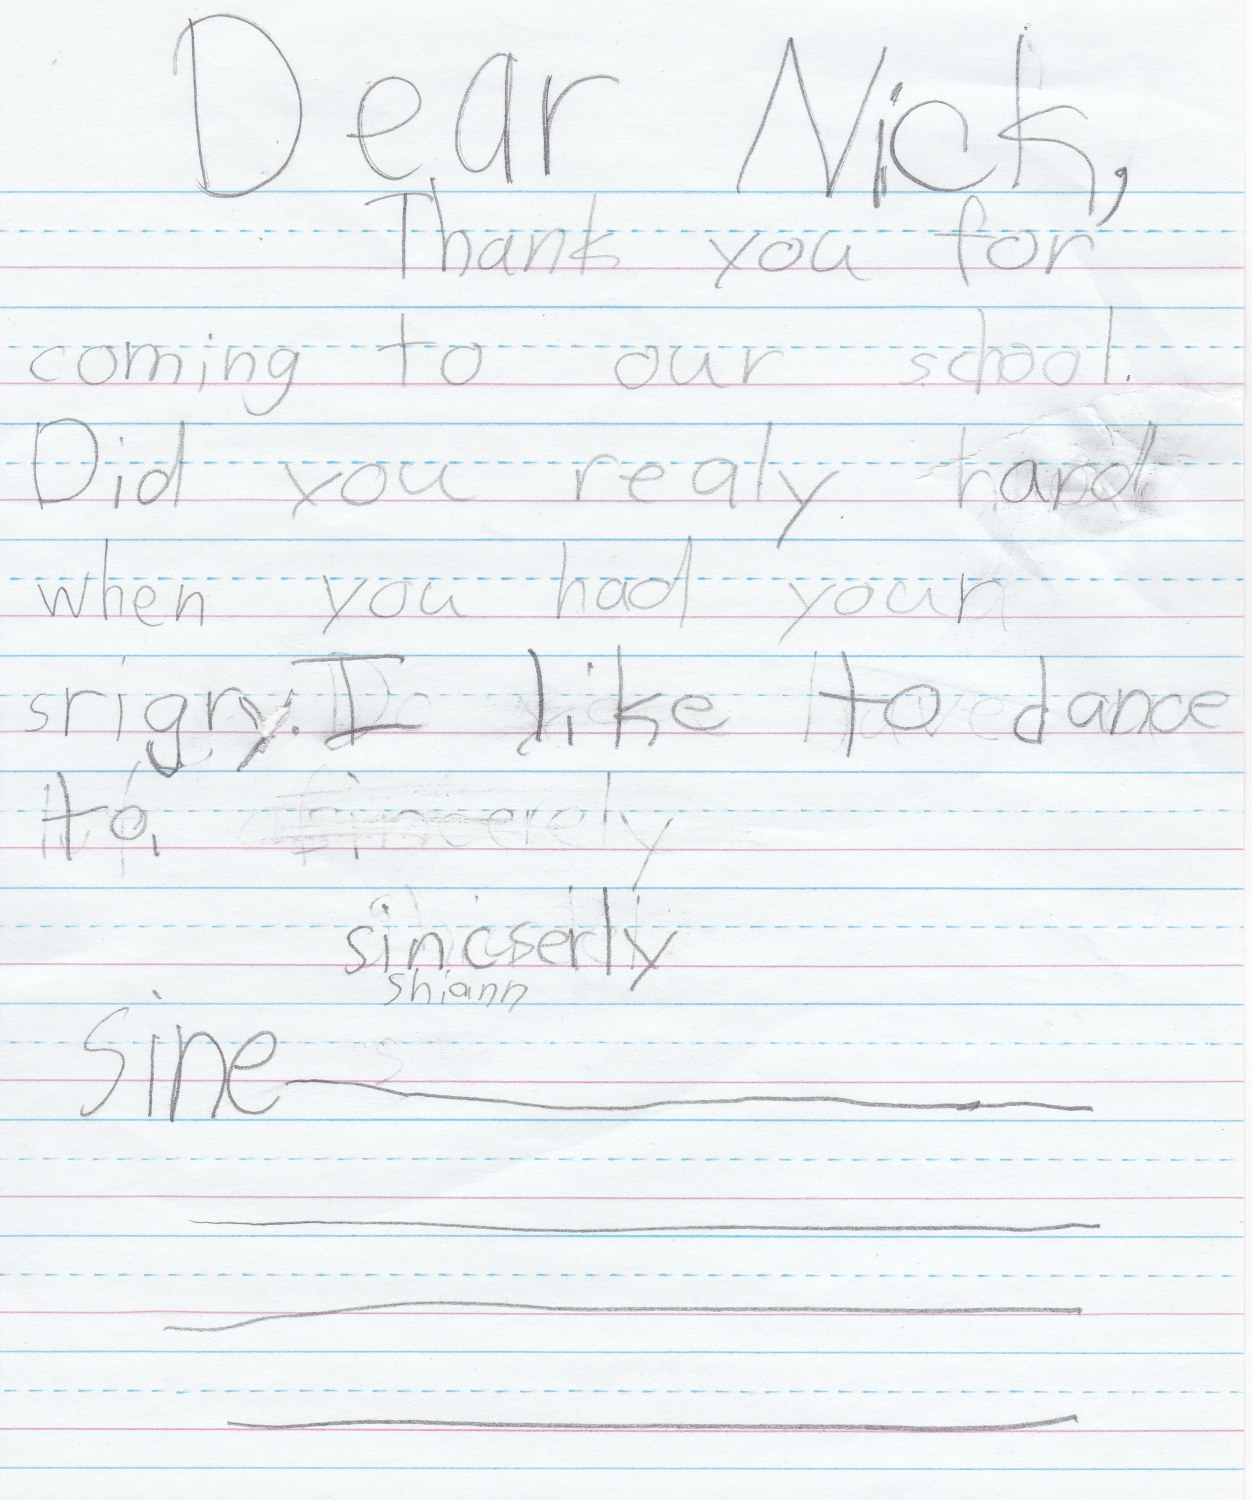 Dear Nick,
Thank you for
coming to our school.
Did you realy hard
when you had your
srigry. I like to dance
to.
sincserly
shiann
Sine